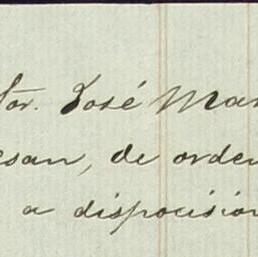 tor. José Mar
esan, de orden
a disposicion